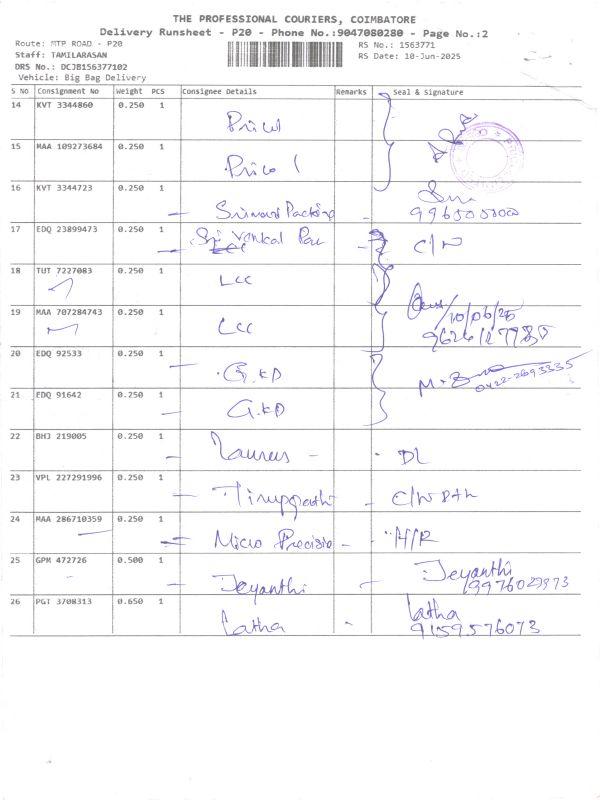 THE PROFESSIONAL COURIERS, COIMBATORE
Delivery Runsheet - P20 - Phone No.:9047080280 - Page No.:2
Route: MTP ROAD - P20 RS No.: 1563771
Staff: TAMILARASAN RS Date: 10-Jun-2025
DRS No.: DCJB156377102
Vehicle: Big Bag Delivery
S NO Consignment No Weight PCS Consignee Details Remarks Seal & Signature
14 KVT 3344860 0.250 1 Pricol
15 MAA 109273684 0.250 1 Pricol
16 KVT 3344723 0.250 1 Srinivas Packing
17 EDQ 23899473 0.250 1 Sri Venkat C/N
18 TUT 7227083 0.250 1 LCC
19 MAA 707284743 0.250 1 LCC 10/06/25
20 EDQ 92533 0.250 1 G.KD 0422-2693335
21 EDQ 91642 0.250 1 G.KD
22 BHJ 219005 0.250 1 DL
23 VPL 227291996 0.250 1 C/N
24 MAA 286710359 0.250 1 Micro Precision H/R
25 GPM 472726 0.500 1 Jeyanthi Jeyanthi
26 PGT 3708313 0.650 1 Latha Latha
9159576073